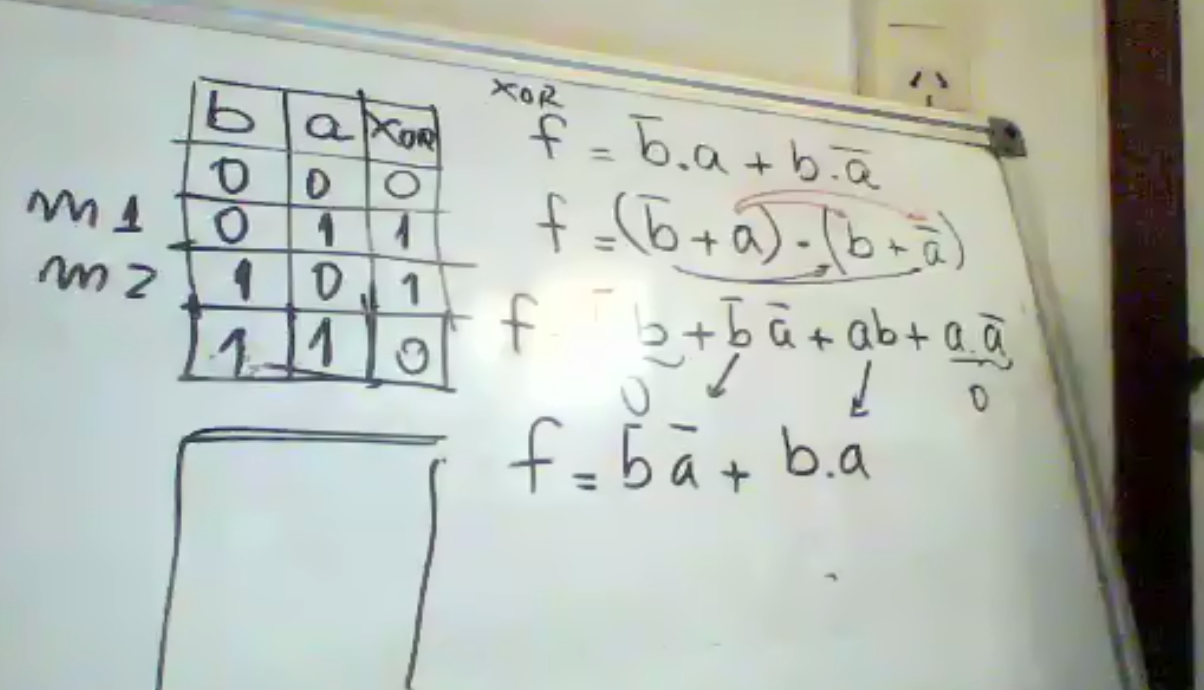 b a XOR
0 0 0
m1 0 1 1
m2 1 0 1
1 1 0
XOR
f = b̅.a + b.a̅
f = (b̅ + a) . (b + a̅)
f b + b̅ a̅ + ab + a.a̅
0 0
f = b̅ a̅ + b.a